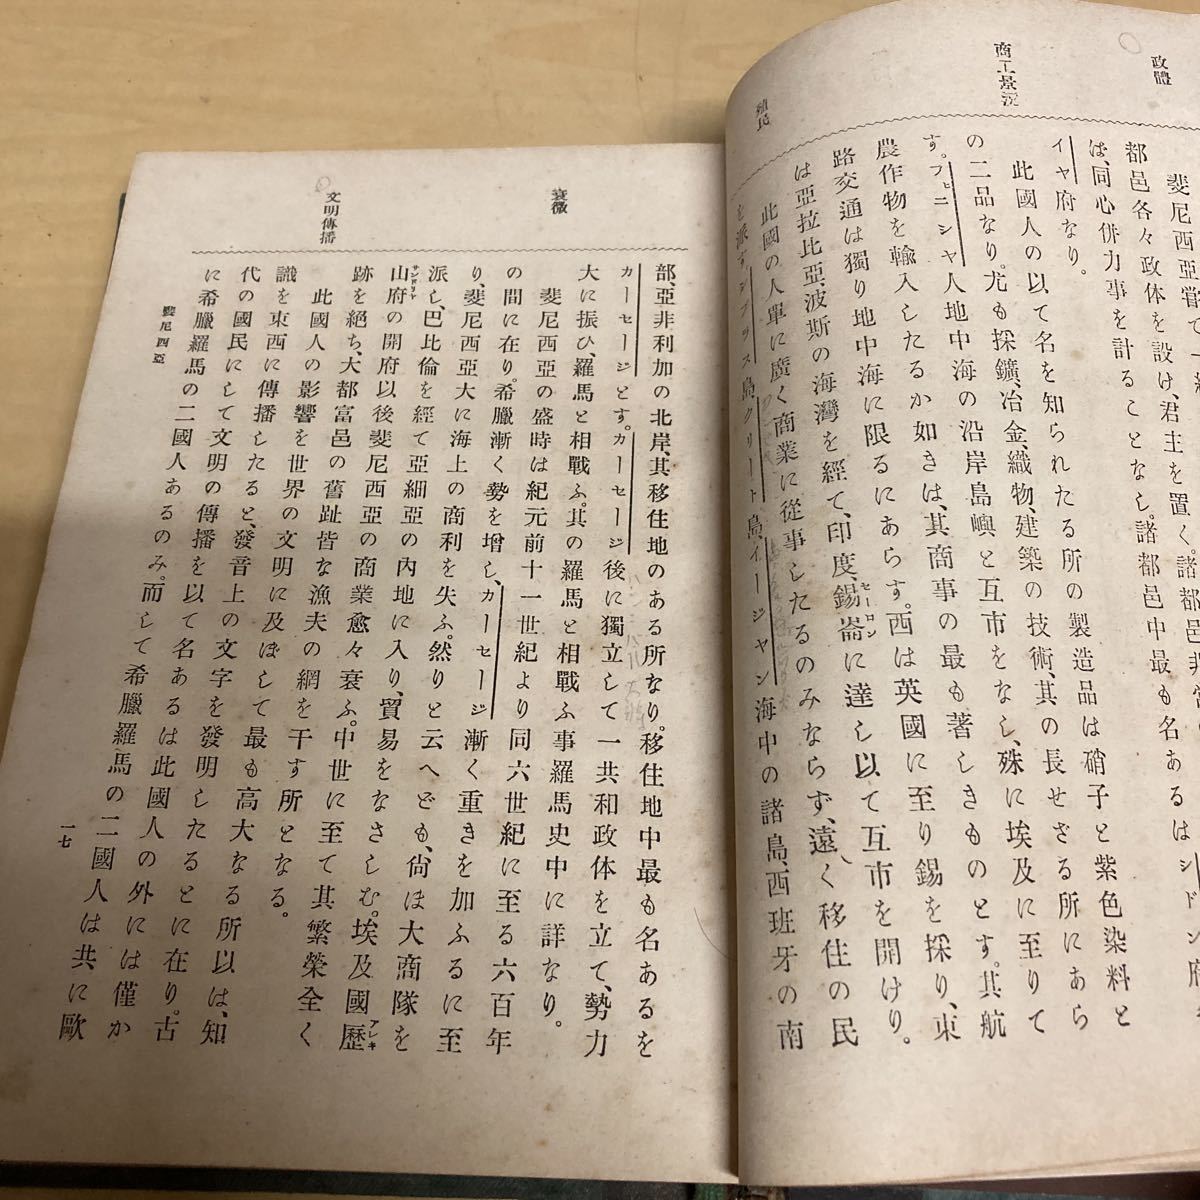 政體
斐尼西亞嘗て一
都邑各々政体を設け、君主を置く、諸都邑非常
は、同心併力事を計ることなし。諸都邑中最も名あるはシドン府
イヤ府なり。
商工景況
此國人の以て名を知られたる所の製造品は硝子と紫色染料と
の二品なり。尤も採鑛、冶金、織物、建築の技術、其の長せざる所にあら
す。フェニシヤ人地中海の沿岸島嶼と互市をなし、殊に埃及に至りて
農作物を輸入したるか如きは、其商事の最も著しきものとす。其航
路交通は獨り地中海に限るにあらす。西は英國に至り錫を採り、東
は亞拉比亞、波斯の海灣を經て、印度、錫崙に達し以て互市を開けり。
セーロン
殖民
此國の人單に廣く商業に從事したるのみならず、遠く移住の民
を派すシプッス島クリート島、イージャン海中の諸島、西班牙の南
部、亞非利加の北岸、其移住地のある所なり。移住地中最も名あるを
カーセージとす。カーセージ後に獨立して一共和政体を立て、勢力
大に振ひ、羅馬と相戰ふ。其の羅馬と相戰ふ事羅馬史中に詳なり。
衰微
斐尼西亞の盛時は紀元前十一世紀より同六世紀に至る六百年
の間に在り。希臘漸く勢を增し、カーセージ漸く重きを加ふるに至
り、斐尼西亞大に海上の商利を失ふ。然りと云へども、尙ほ大商隊を
派し、巴比倫を經て亞細亞の內地に入り、貿易をなさしむ。埃及國歷
アレキ
サンドリヤ
山府の開府以後斐尼西亞の商業愈々衰ふ。中世に至て其繁榮全く
跡を絕ち、大都富邑の舊趾皆な漁夫の網を干す所となる。
文明傳播
此國人の影響を世界の文明に及ぼして最も高大なる所以は、知
識を東西に傳播したると、發音上の文字を發明したるとに在り。古
代の國民にして文明の傳播を以て名あるは此國人の外には僅か
に希臘羅馬の二國人あるのみ。而して希臘羅馬の二國人は共に歐
斐尼西亞
一七